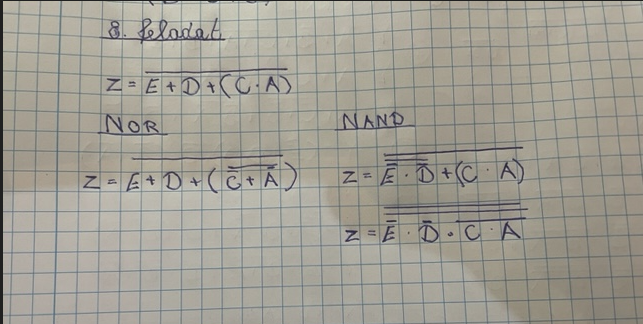 8. feladat
Z = \overline{E + D + (C · A)}
NOR
Z = \overline{E + D + (\overline{\overline{C} + \overline{A}})}
NAND
Z = \overline{\overline{\overline{E} · \overline{D}} + (C · A)}
Z = \overline{\overline{\overline{E} · \overline{D} · \overline{C · A}}}